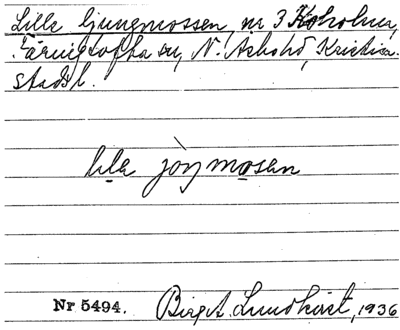 Lilla ljungmossen, nr 3 Koholma,
Färingtofta sn, N. Åsbo hd, Kristian-
stads l.
lıla jòŋmosen
Nr 5494. Birgit Lundkvist, 1936